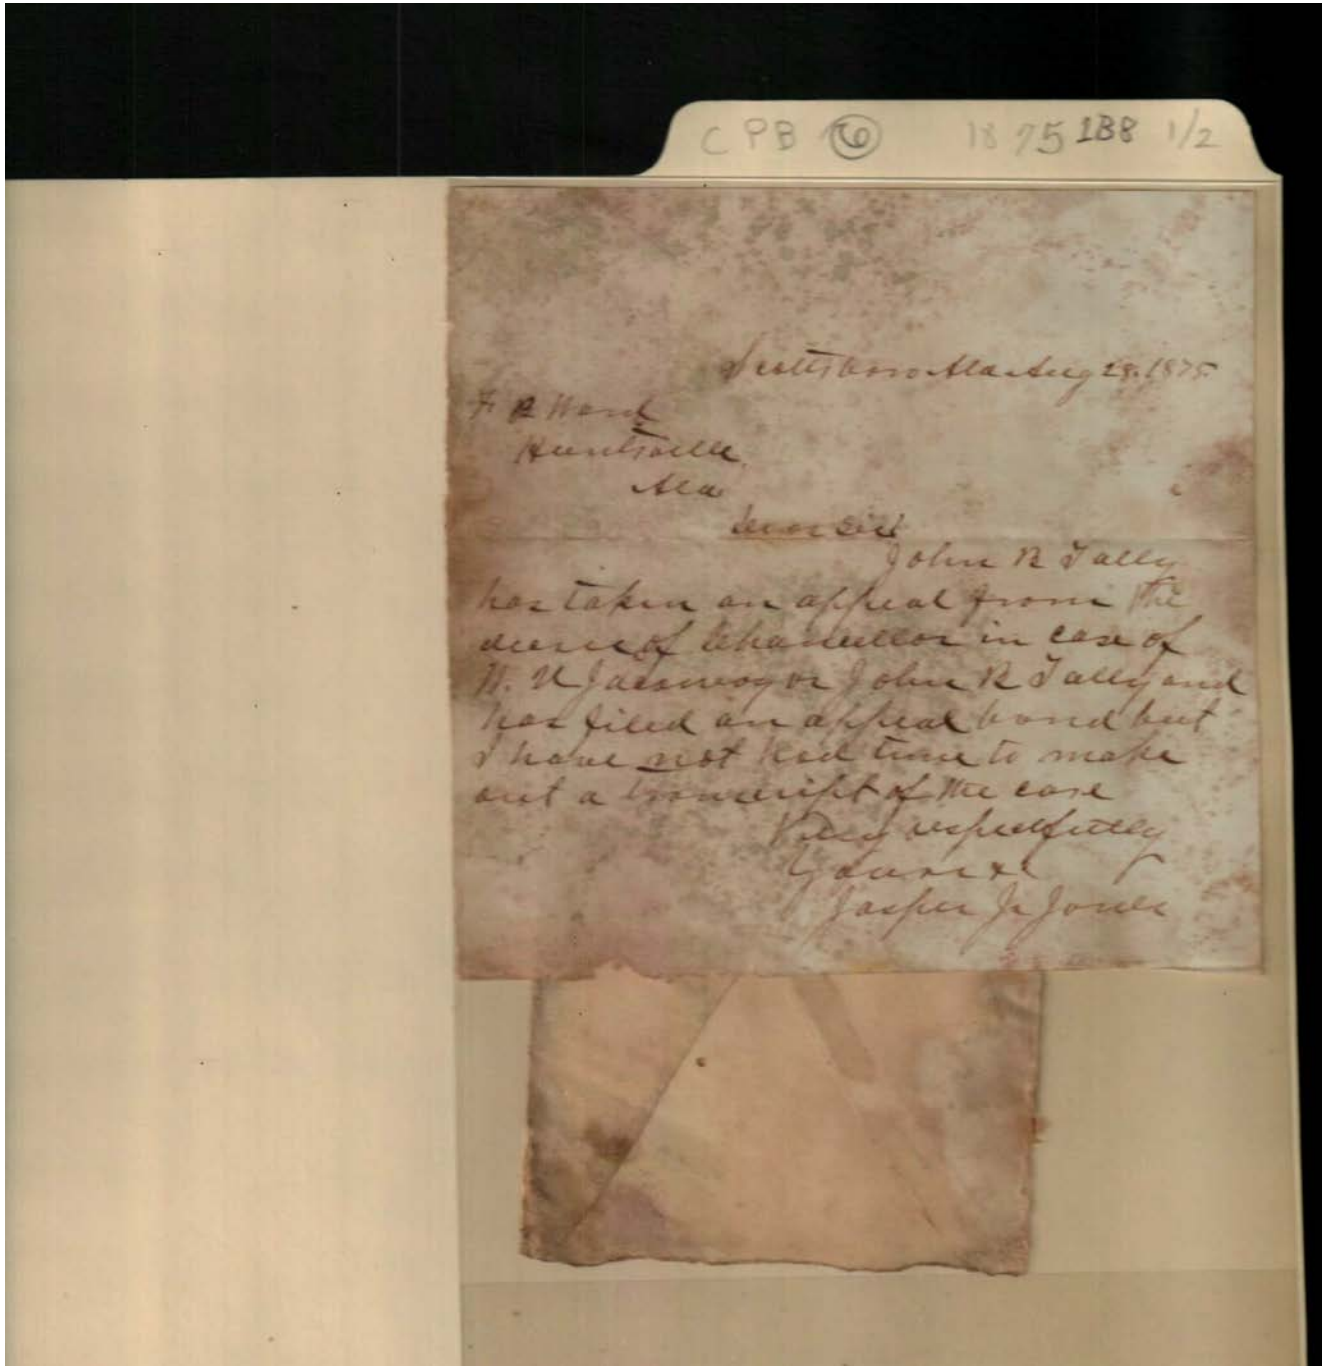 CPB 6 1875 1B8 1/2
Scottsboro Ala Aug 28. 1875
F. R Ward
Huntsville
Ala
Dear Sir
John R Tally
has taken an appeal from the
decree of Chancellor in case of
Jacoway vs John R Tally and
has filed an appeal bond but
I have not had time to make
out a transcript of the case
Very respectfully
Yours &c
Jasper J. Jones